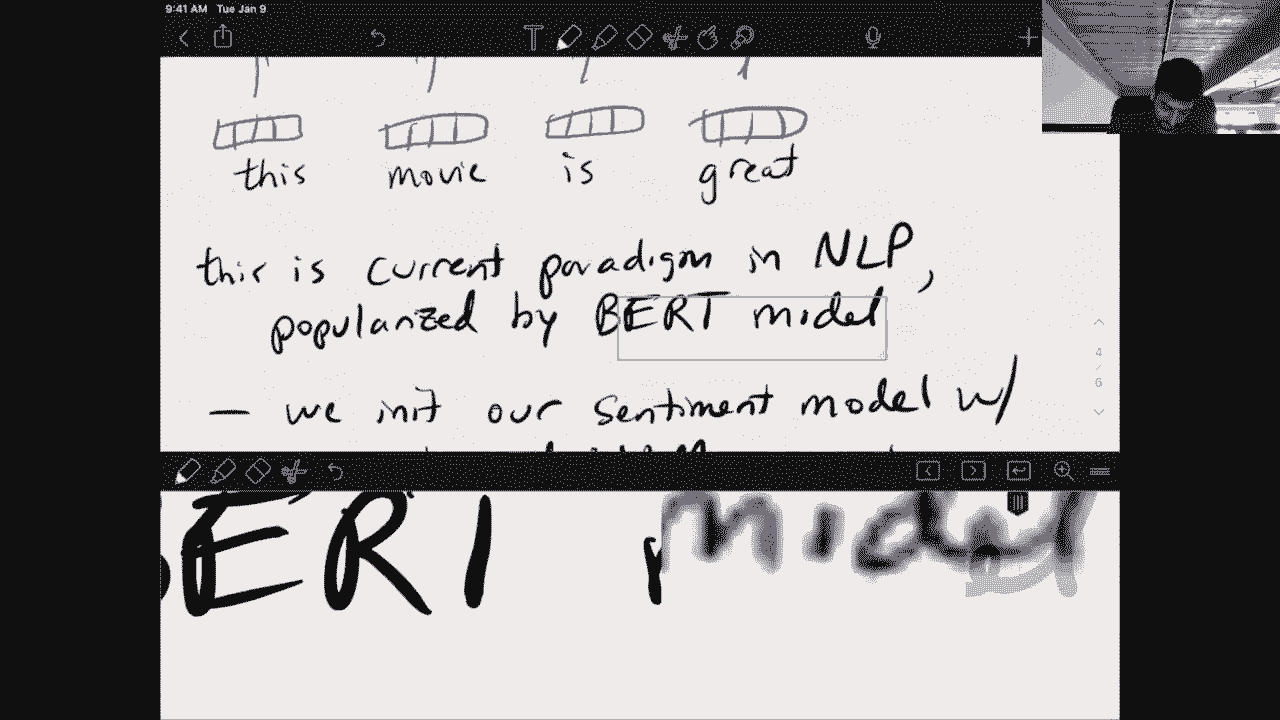 9:41 AM Tue Jan 9
this movie is great
this is current paradigm in NLP,
popularized by BERT model
4
/
6
— we init our sentiment model w/
BERT model